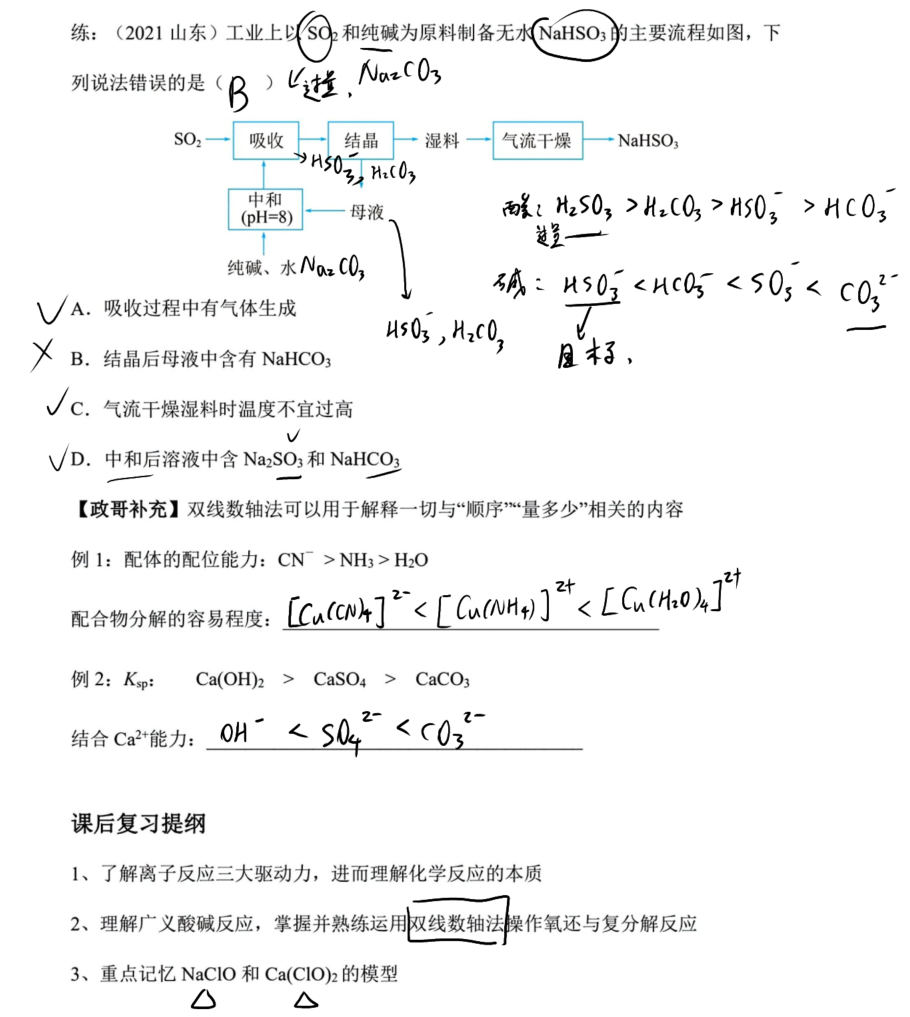 练：（2021 山东）工业上以 SO₂ 和纯碱为原料制备无水 NaHSO₃ 的主要流程如图，下
列说法错误的是（ B ） 过量， Na₂CO₃
SO₂ → 吸收 → 结晶 → 湿料 → 气流干燥 → NaHSO₃
→ HSO₃⁻, H₂CO₃
中和
(pH=8) ← 母液
酸: H₂SO₃ > H₂CO₃ > HSO₃⁻ > HCO₃⁻
过量
纯碱、水 Na₂CO₃
碱: HSO₃⁻ < HCO₃⁻ < SO₃⁻ < CO₃²⁻
HSO₃⁻, H₂CO₃
目标，
✓ A．吸收过程中有气体生成
× B．结晶后母液中含有 NaHCO₃
✓ C．气流干燥湿料时温度不宜过高
✓ D．中和后溶液中含 Na₂SO₃ 和 NaHCO₃
【政哥补充】双线数轴法可以用于解释一切与“顺序”“量多少”相关的内容
例 1：配体的配位能力：CN⁻ > NH₃ > H₂O
配合物分解的容易程度：[Cu(CN)₄]²⁻ < [Cu(NH₄)]²⁺ < [Cu(H₂O)₄]²⁺
例 2：Ksp： Ca(OH)₂ > CaSO₄ > CaCO₃
结合 Ca²⁺能力：OH⁻ < SO₄²⁻ < CO₃²⁻
课后复习提纲
1、了解离子反应三大驱动力，进而理解化学反应的本质
2、理解广义酸碱反应，掌握并熟练运用双线数轴法操作氧还与复分解反应
3、重点记忆 NaClO 和 Ca(ClO)₂ 的模型